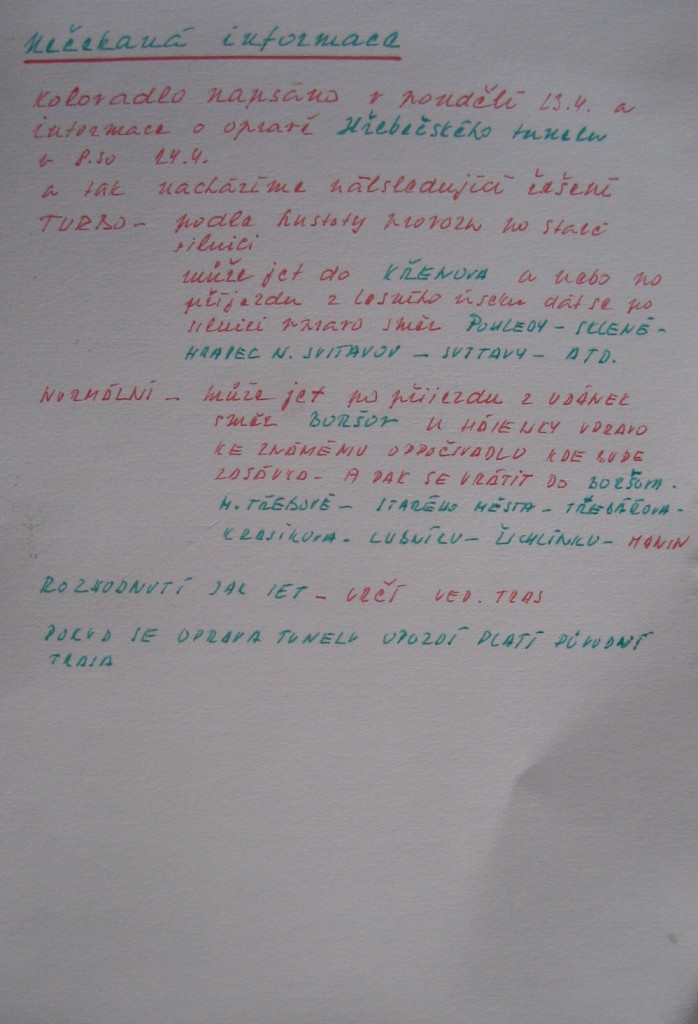 Nečekaná informace
Koloradlo napsáno v pondělí 23.4. a
informace o opravě Hřebečského tunelu
v 8.50 24.4.
a tak nacházíme následující řešení
TURBO - podle hustoty provozu po staré
silnici
může jet do KŘENOVA a nebo po
příjezdu z lesního úseku dát se po
silnici vpravo směr POHLEDY - SKLENÉ -
HRADEC N. SVITAVOU - SVITAVY - ATD.
NORMÁLNÍ - může jet po příjezdu z UDÁNEK
směr BORŠOV U HÁJENKY VPRAVO
KE ZNÁMÉMU ODPOČIVADLU KDE BUDE
A PAK SE VRÁTIT DO BORŠOVA.
M. TŘEBOVÉ - STARÉHO MĚSTA - TŘEBAŘOVA -
KRASÍKOVA - LUBNÍKU - ŽICHLÍNKU - MANIN
ROZHODNUTÍ JAK JET - URČÍ VED. TRAS
POKUD SE OPRAVA TUNELU UPOZDÍ PLATÍ PŮVODNÍ
TRASA